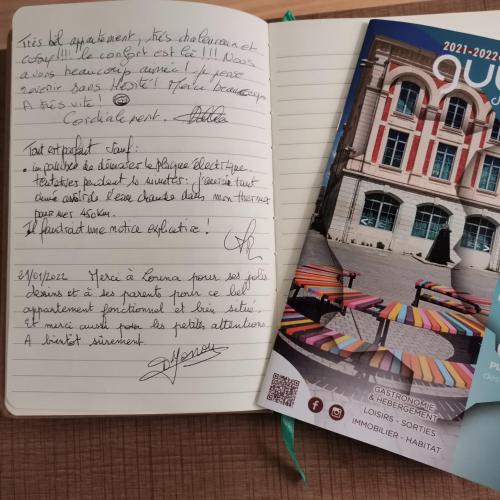 Très bel appartement, très chaleureux et
cosy!!!! le confort est là!!!! Nous
avons beaucoup aimé! Je pense
revenir sans hésité! Merci beaucoup
A très vite!
Cordialement.
Tout est parfait Sauf:
impossible de démarrer la plaque électrique.
tentatives pendant 10 minutes: j'aurais tant
aimé avoir de l'eau chaude dans mon thermos
pour mes 450km.
Il faudrait une notice explicative!
21/01/2022 Merci à Louna pour ses jolis
dessins et à ses parents pour ce bel
appartement fonctionnel et bien situé.
Et merci aussi pour les petites attentions.
A bientôt sûrement.
2021-2022
GASTRONOMIE
& HÉBERGEMENT
LOISIRS - SORTIES
IMMOBILIER - HABITAT